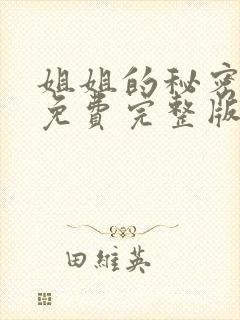 姐姐的秘密
免费完整版
田維英